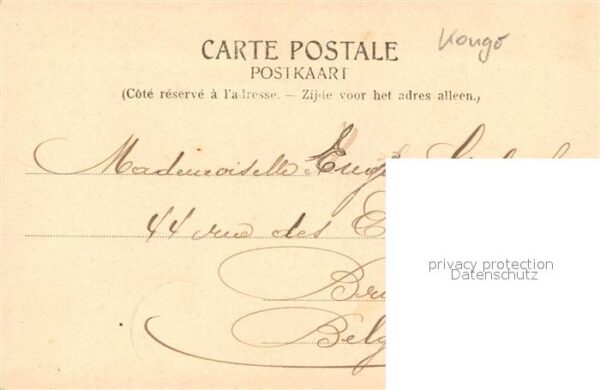 Kongo
CARTE POSTALE
POSTKAART
(Côté réservé à l'adresse. — Zijde voor het adres alleen.)
Mademoiselle Eugé
44 rue des E
Bru
Belg
privacy protection
Datenschutz